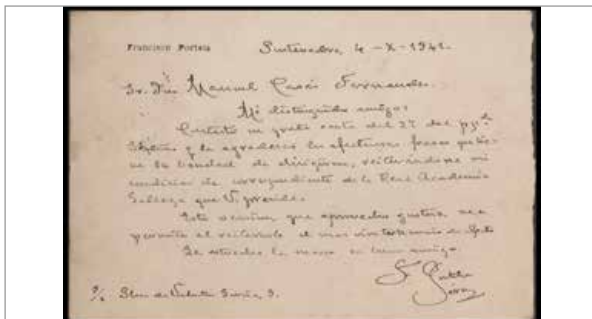 Francisco Portela
Pontevedra, 4-X-1941.
Sr. Don Manuel Casás Fernández.
Mi distinguido amigo:
Contesto su grata carta del 27 del
y le agradezco las afectuosas frases que tie-
ne la bondad de dirigirme, reiterándose mi
condición de correspondiente de la Real Academia
Gallega que V. preside.
Esta ocasión, que aprovecho gustoso, me
permite el reiterarle el mas
Le estrecha la mano su buen amigo.
F. Portela